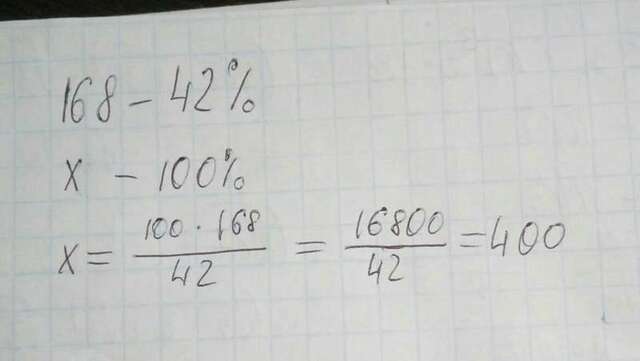 168 – 42%
x – 100%
x = 100 · 168 / 42 = 16800 / 42 = 400